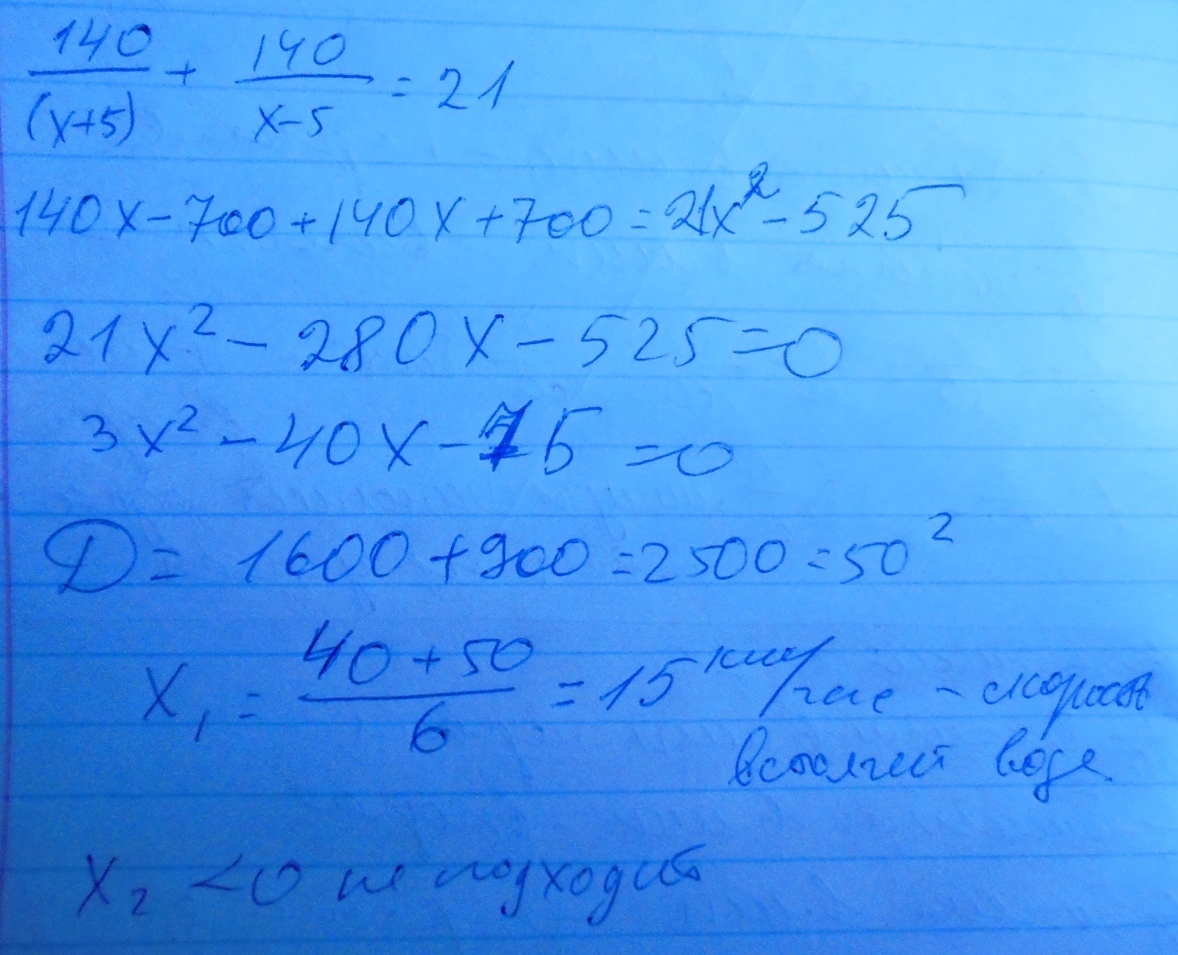 140/(x+5) + 140/x-5 = 21
140x-700+140x+700=21x²-525
21x²-280x-525=0
3x²-40x-75=0
D=1600+900=2500=50²
x₁ = 40+50/6 = 15 км/час - скорость
в стоячей воде
x₂ <0 не подходит